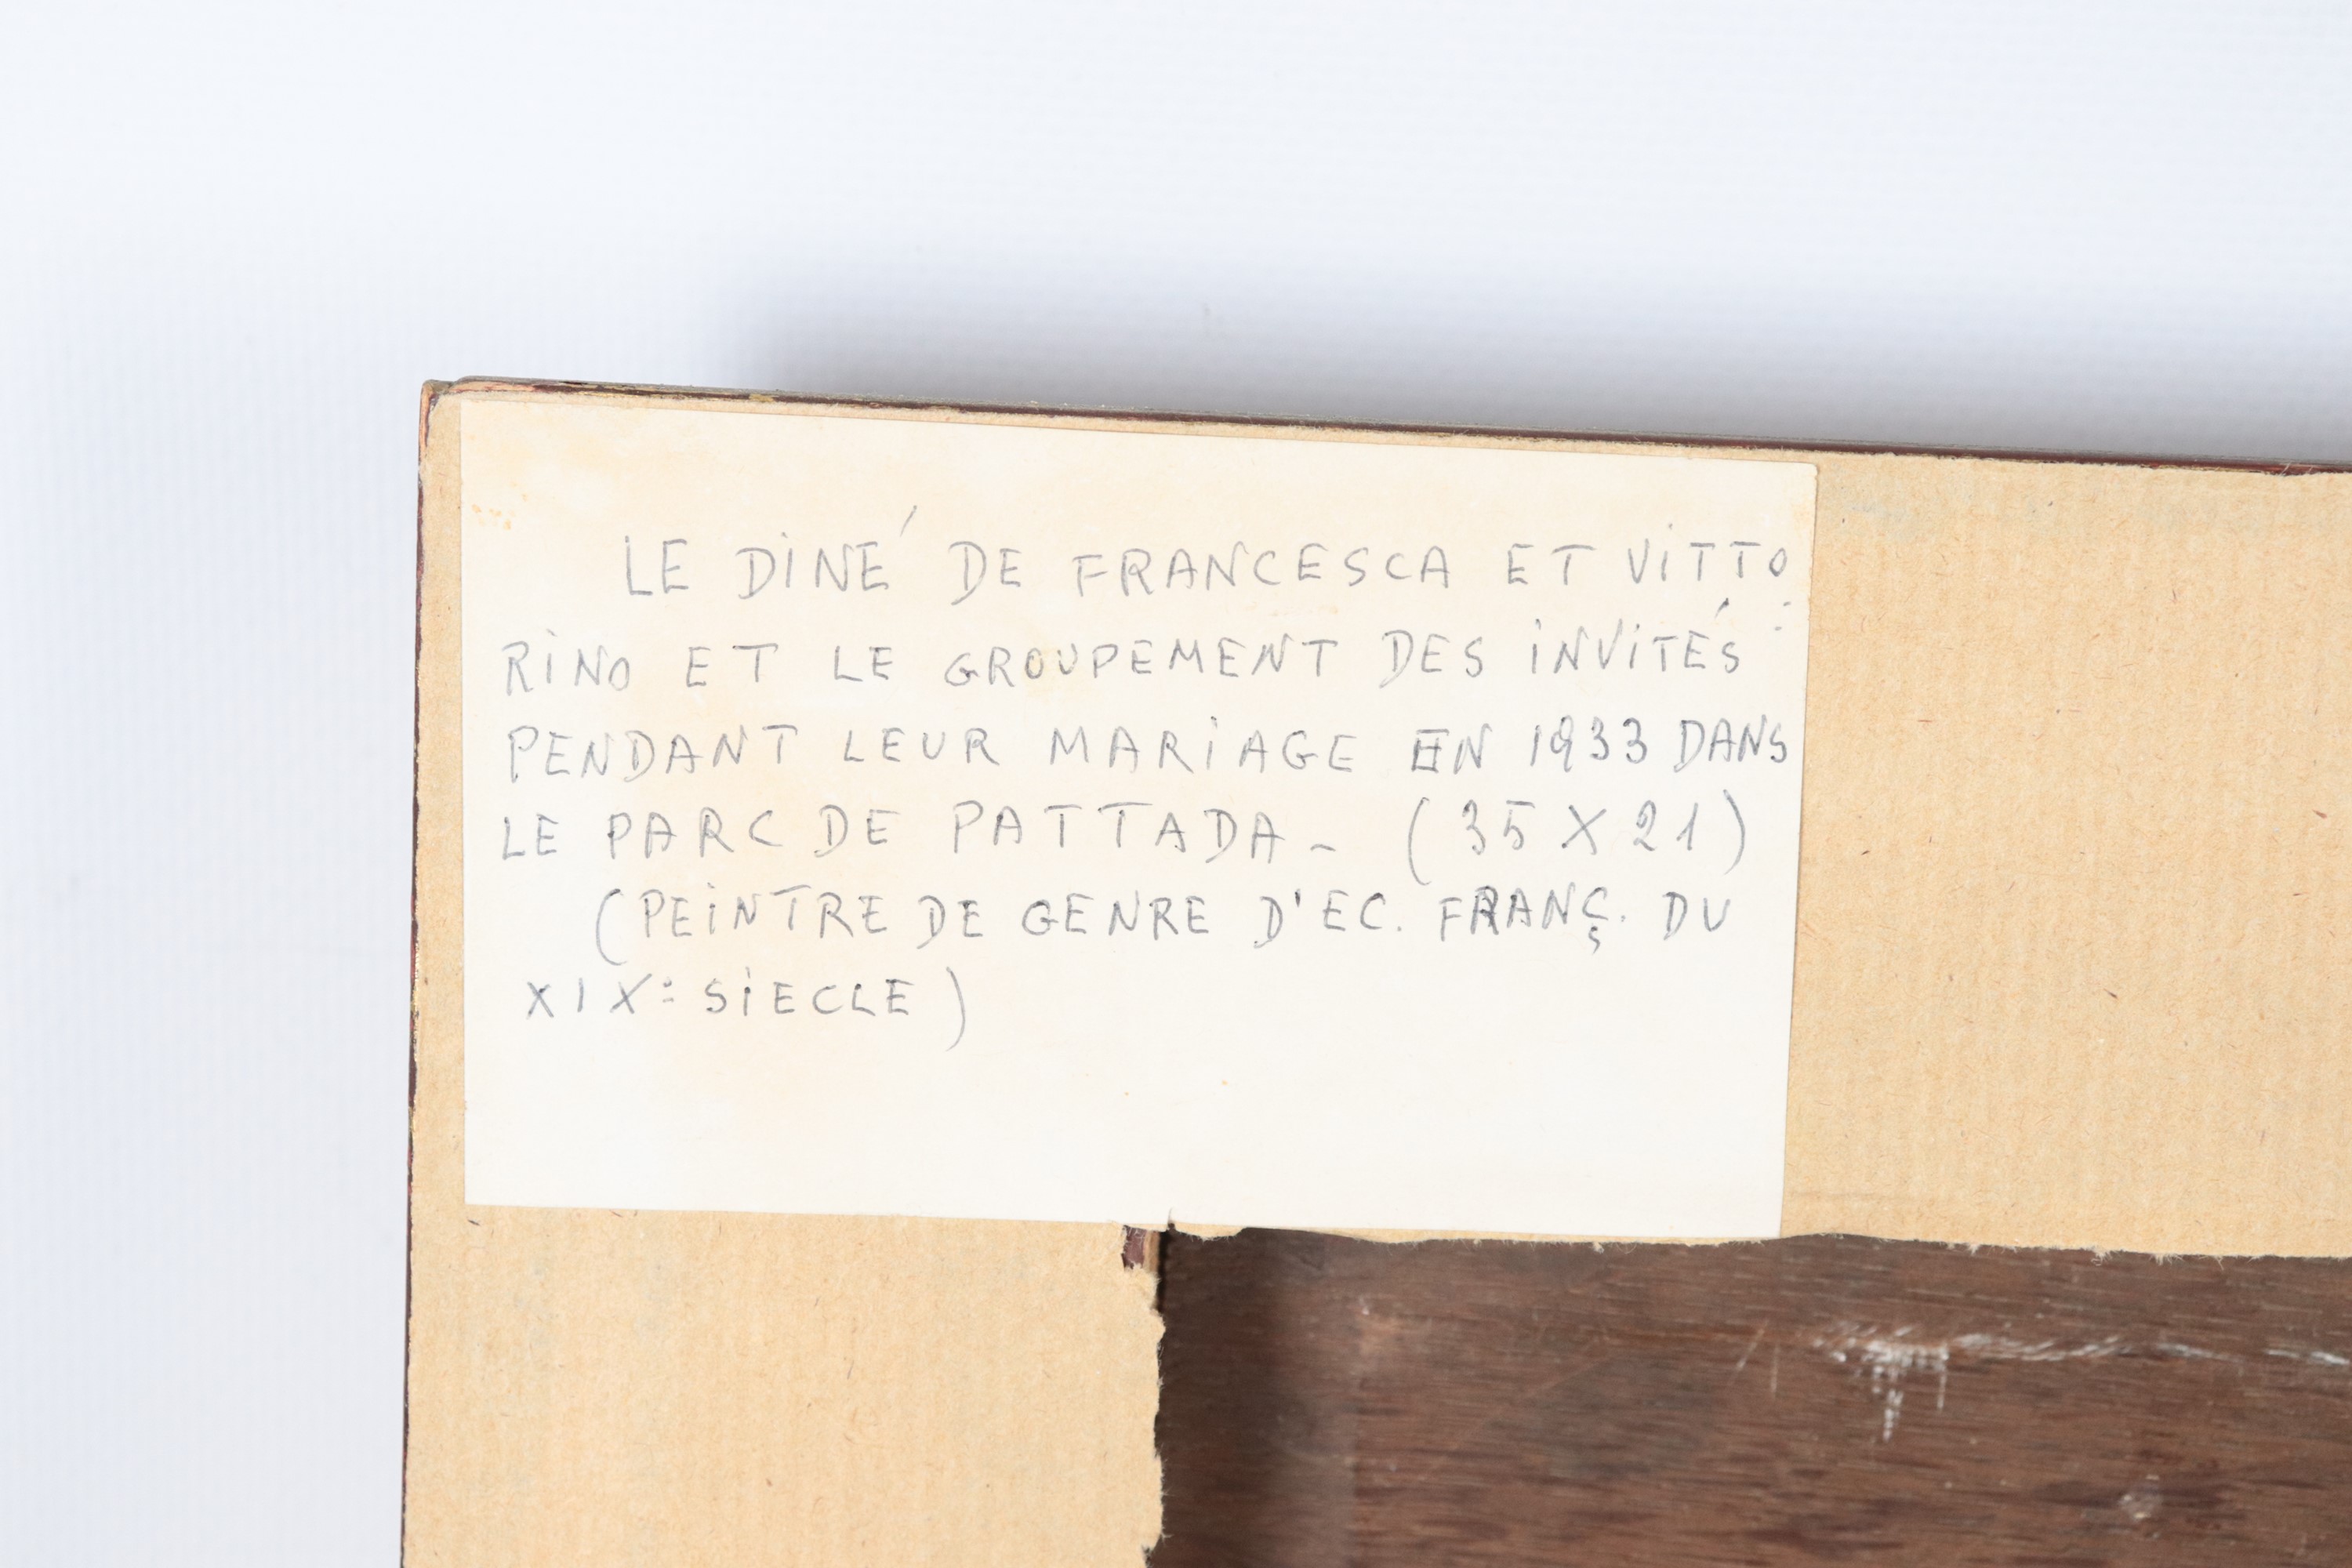 LE DINÉ DE FRANCESCA ET VITTO=
RINO ET LE GROUPEMENT DES INVITÉS
PENDANT LEUR MARIAGE EN 1933 DANS
LE PARC DE PATTADA - (35 X 21)
(PEINTRE DE GENRE D'EC. FRANÇ. DU
XIX= SIECLE)